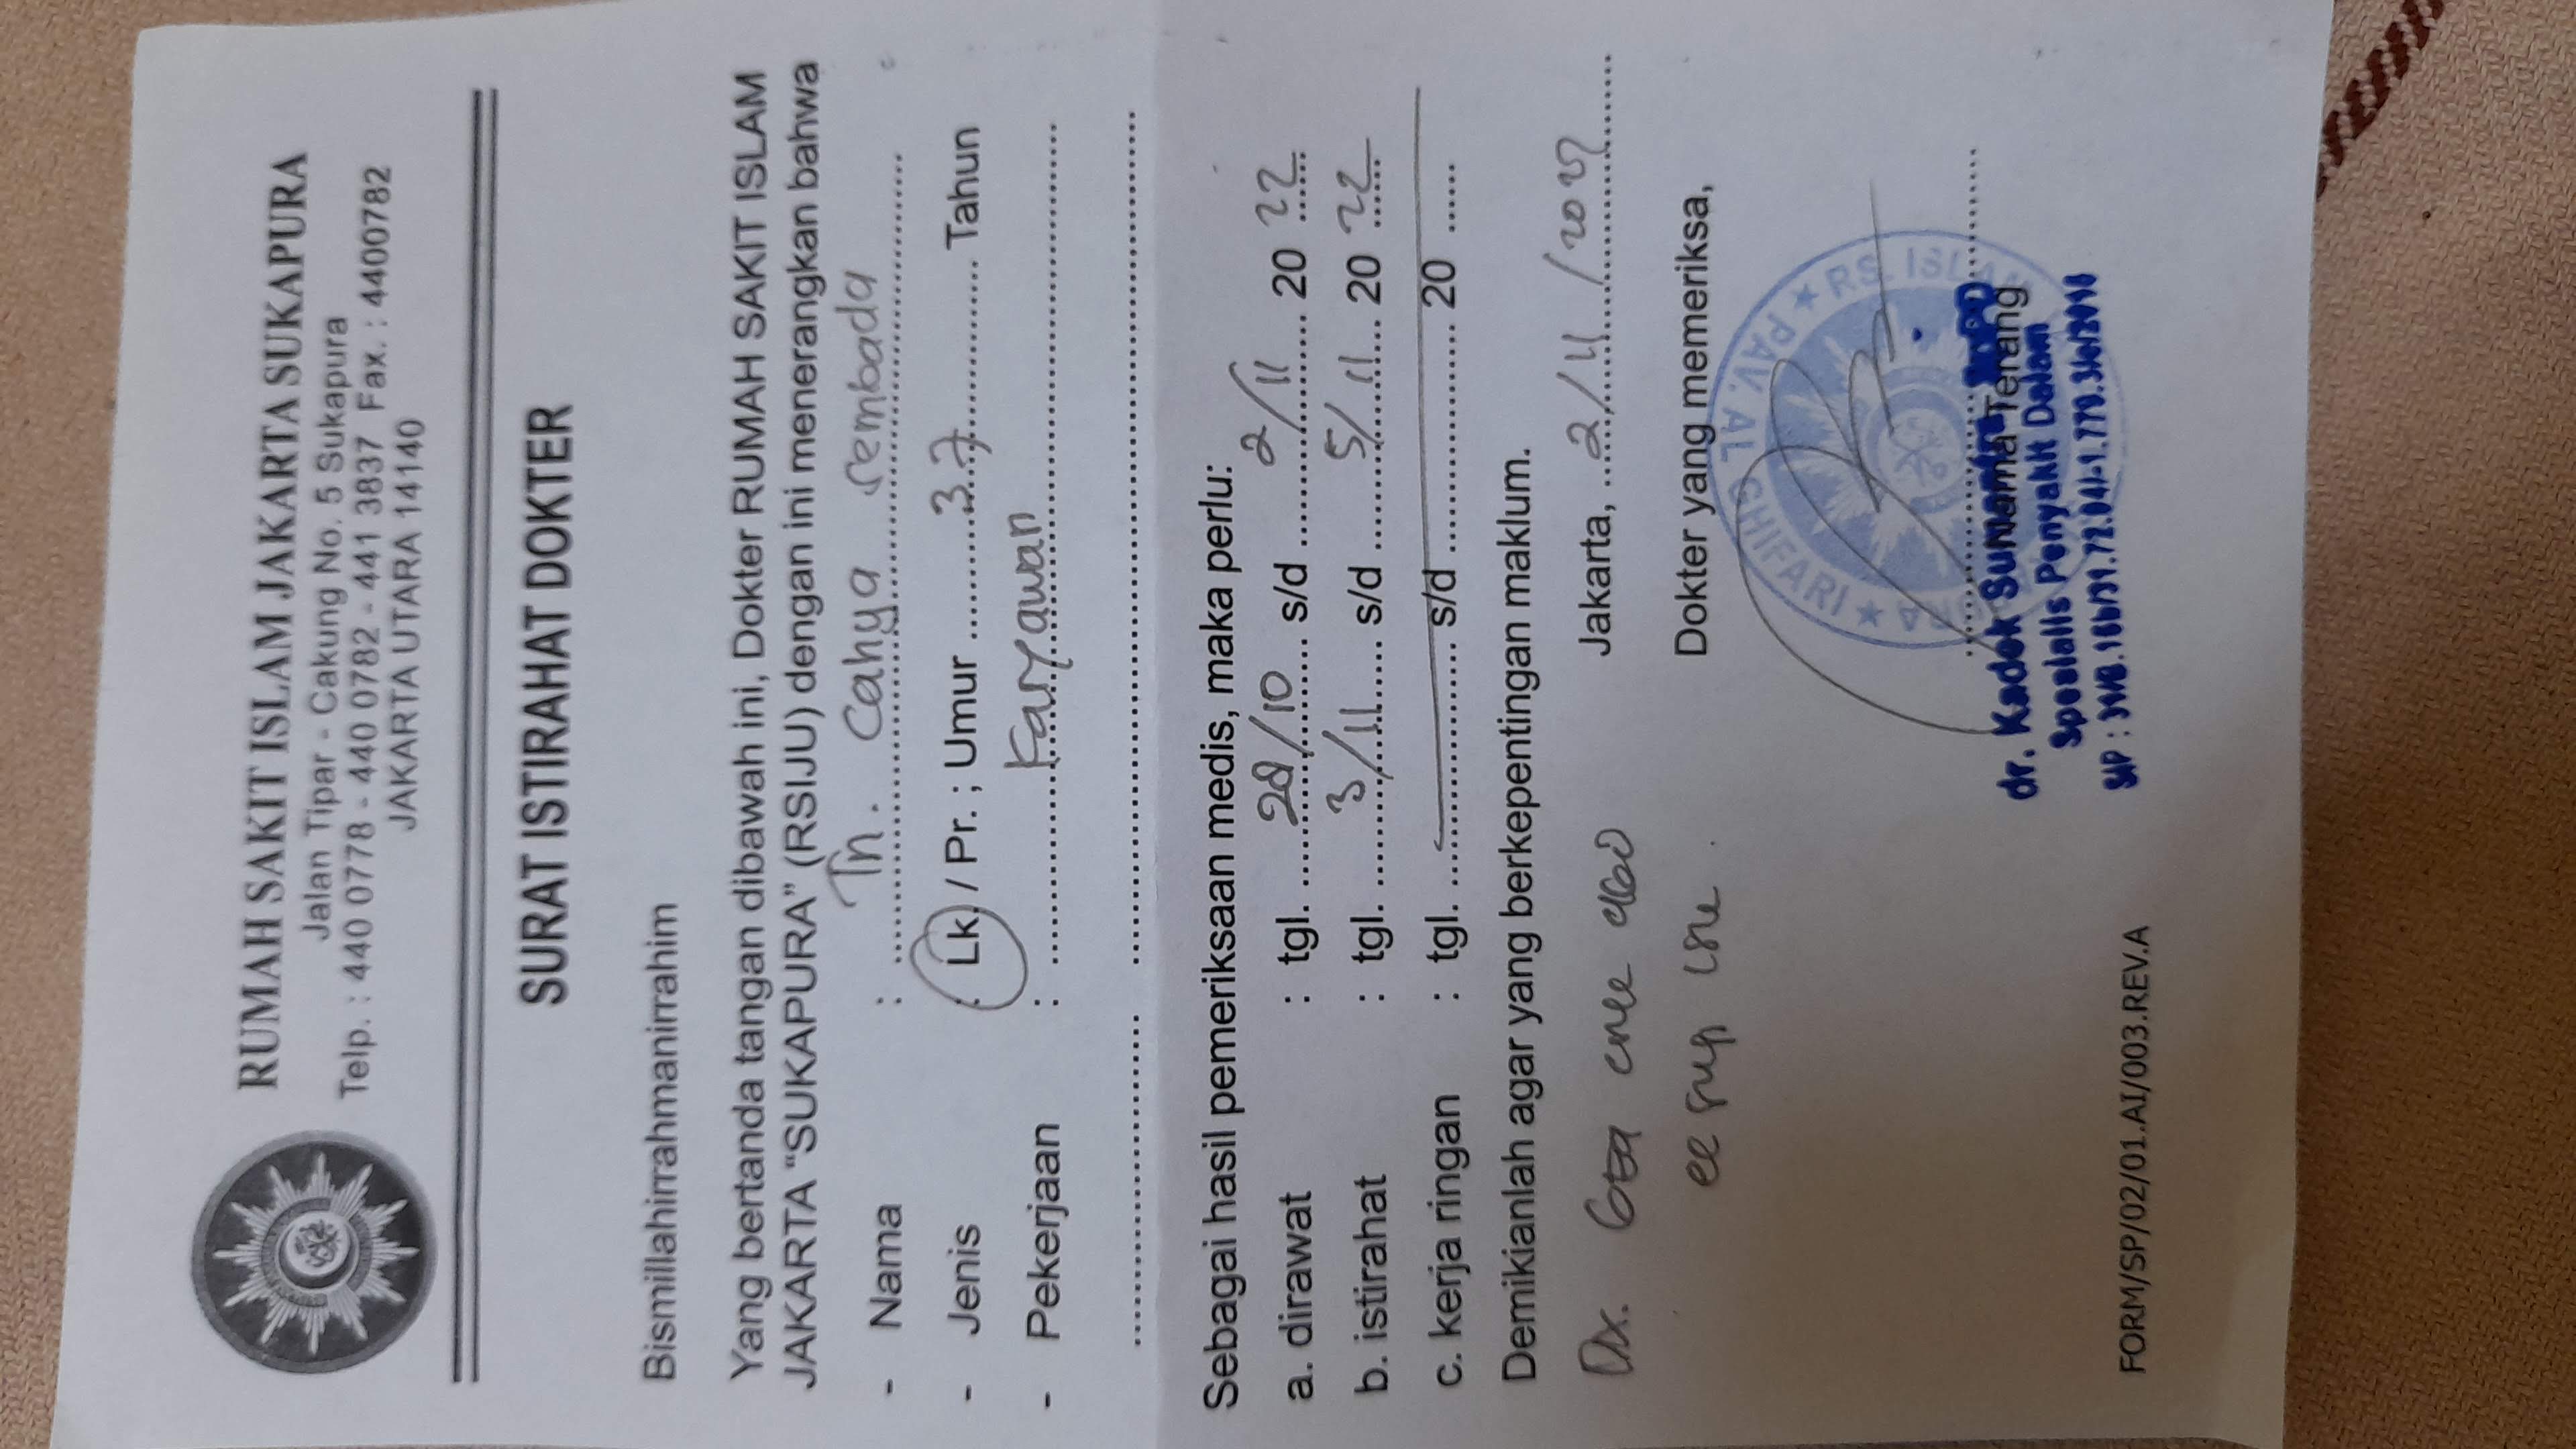 RUMAH SAKIT ISLAM JAKARTA SUKAPURA
Jalan Tipar - Cakung No. 5 Sukapura
Telp. : 440 0778 - 440 0782 - 441 3837 Fax. : 4400782
JAKARTA UTARA 14140
SURAT ISTIRAHAT DOKTER
Bismillahirrahmanirrahim
Yang bertanda tangan dibawah ini, Dokter RUMAH SAKIT ISLAM
JAKARTA “SUKAPURA” (RSIJU) dengan ini menerangkan bahwa
- Nama : Tn. Cahya Sembada
- Jenis : Lk. / Pr. ; Umur 37 Tahun
- Pekerjaan : Karyawan
Sebagai hasil pemeriksaan medis, maka perlu:
a. dirawat : tgl. 28/10 s/d 2/11 20 22
b. istirahat : tgl. 3/11 s/d 5/11 20 22
c. kerja ringan : tgl. s/d 20
Demikianlah agar yang berkepentingan maklum.
Jakarta, 2/11/2022
Dx.
Dokter yang memeriksa,
PAV. AL GHIFARI ★ RS. ISLAM
dr. Kadek
Nama Terang
Spesialis Penyakit Dalam
SIP :
FORM/SP/02/01.AI/003.REV.A